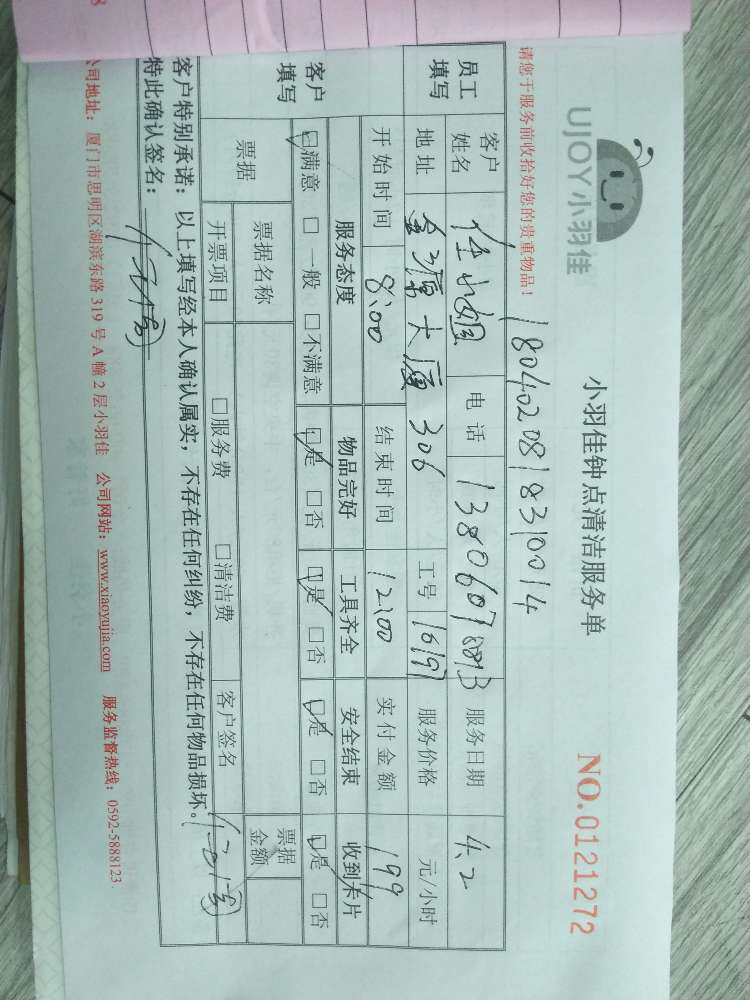 UJOY小羽佳
小羽佳钟点清洁服务单
NO.0121272
请您于服务前收拾好您的贵重物品！
1804020818310014
员工填写
客户姓名 任小姐 电话 服务日期 4.2
地址 大厦 306 工号 16197 服务价格 元/小时
开始时间 8:00 结束时间 12:00 实付金额 199
客户填写
服务态度 物品完好 工具齐全 安全结束 收到卡片
☑满意 □一般 □不满意 ☑是 □否 ☑是 □否 ☑是 □否 ☑是 □否
票据 票据名称 票据金额
开票项目 □服务费 □清洁费 客户签名
客户特别承诺：以上填写经本人确认属实，不存在任何纠纷，不存在任何物品损坏。
特此确认签名：
公司地址：厦门市思明区湖滨东路 319 号 A 幢 2 层小羽佳 公司网站：www.xiaoyujia.com 服务监督热线：0592-5888123